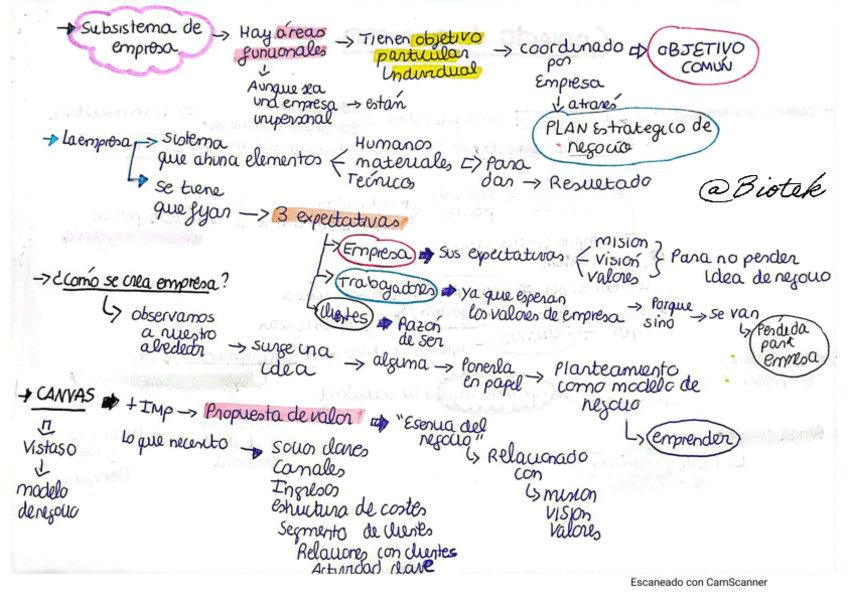 → Subsistema de empresa → Hay áreas funcionales → Tienen objetivo particular Individual → coordinado por Empresa ⇒ OBJETIVO COMÚN
↓
Aunque sea una empresa unipersonal → están
↓ através
PLAN Estrategico de negocio
→ La empresa → sistema que ahuna elementos < Humanos materiales Técnicos ⇒ Para dar → Resultado
@Biotek
→ Se tiene que fijar → 3 expectativas
→ Empresa → Sus expectativas < mision Visión Valores } Para no perder Idea de negocio
→ Trabajadores → ya que esperan los valores de empresa → Porque sino → se van
↳ Pérdida part empresa
Clientes → Razón de ser
→ ¿Cómo se crea empresa?
↳ observamos a nuestro alrededor → surge una idea → alguna → Ponerla en papel → Planteamiento como modelo de negocio
↳ emprender
→ CANVAS → + Imp → Propuesta de valor → "Esencia del negocio"
↳ Relacionado con
↳ mision
vision
Valores
⇓
Vistaso
↓
modelo de negocio
lo que necesito → Socios claves
Canales
Ingresos
estructura de costes
Segmento de clientes
Relaciones con clientes
Actividad clave
Escaneado con CamScanner